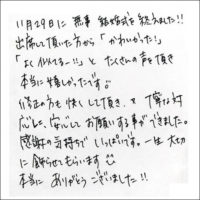 11月29日に 無事 結婚式を終えました!!
出席して頂いた方から「かわいかった!」
「よく似てるー!!」と たくさんの声を頂き
本当に嬉しかったです。
修正の方も快くして頂き、丁寧な対
応に、安心して お願いする事ができました。
感謝の気持ちで いっぱいです。一生 大切
に 飾らせてもらいます
本当に ありがとう ございました!!